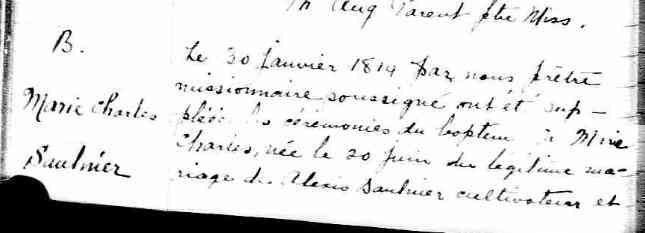 Th Aug Parent ptre Miss.
B.
Marie Charles
Saulnier
Le 30 janvier 1819 par nous prêtre
missionnaire soussigné ont été sup-
pléé les cérémonies du baptem à Marie
Charles, née le 20 juin du legitime ma-
riage de Alexis Saulnier cultivateur et